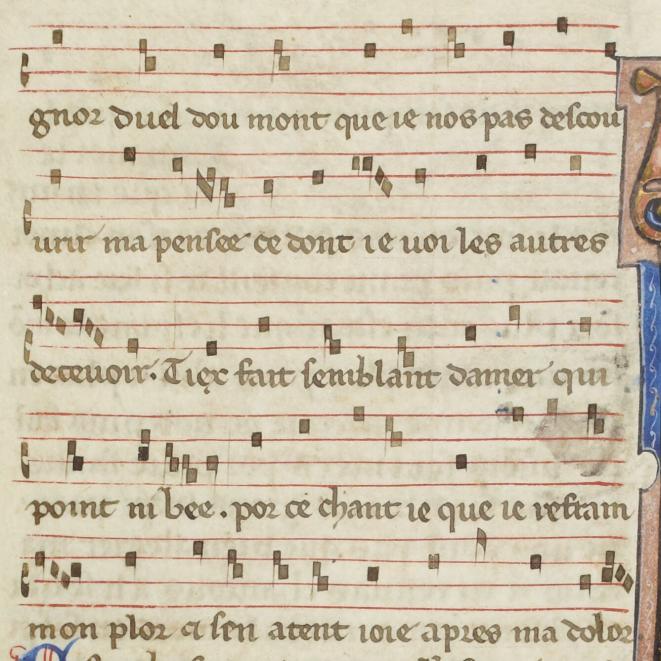 gnor duel dou mont que ie nos pas descou
urir ma pensee ce dont ie uoi les autres
deceuoir. Tiex fait semblant damer qui
point ni bee. por ce chant ie que ie refraim
mon plor et sen atent ioie apres ma dolor.